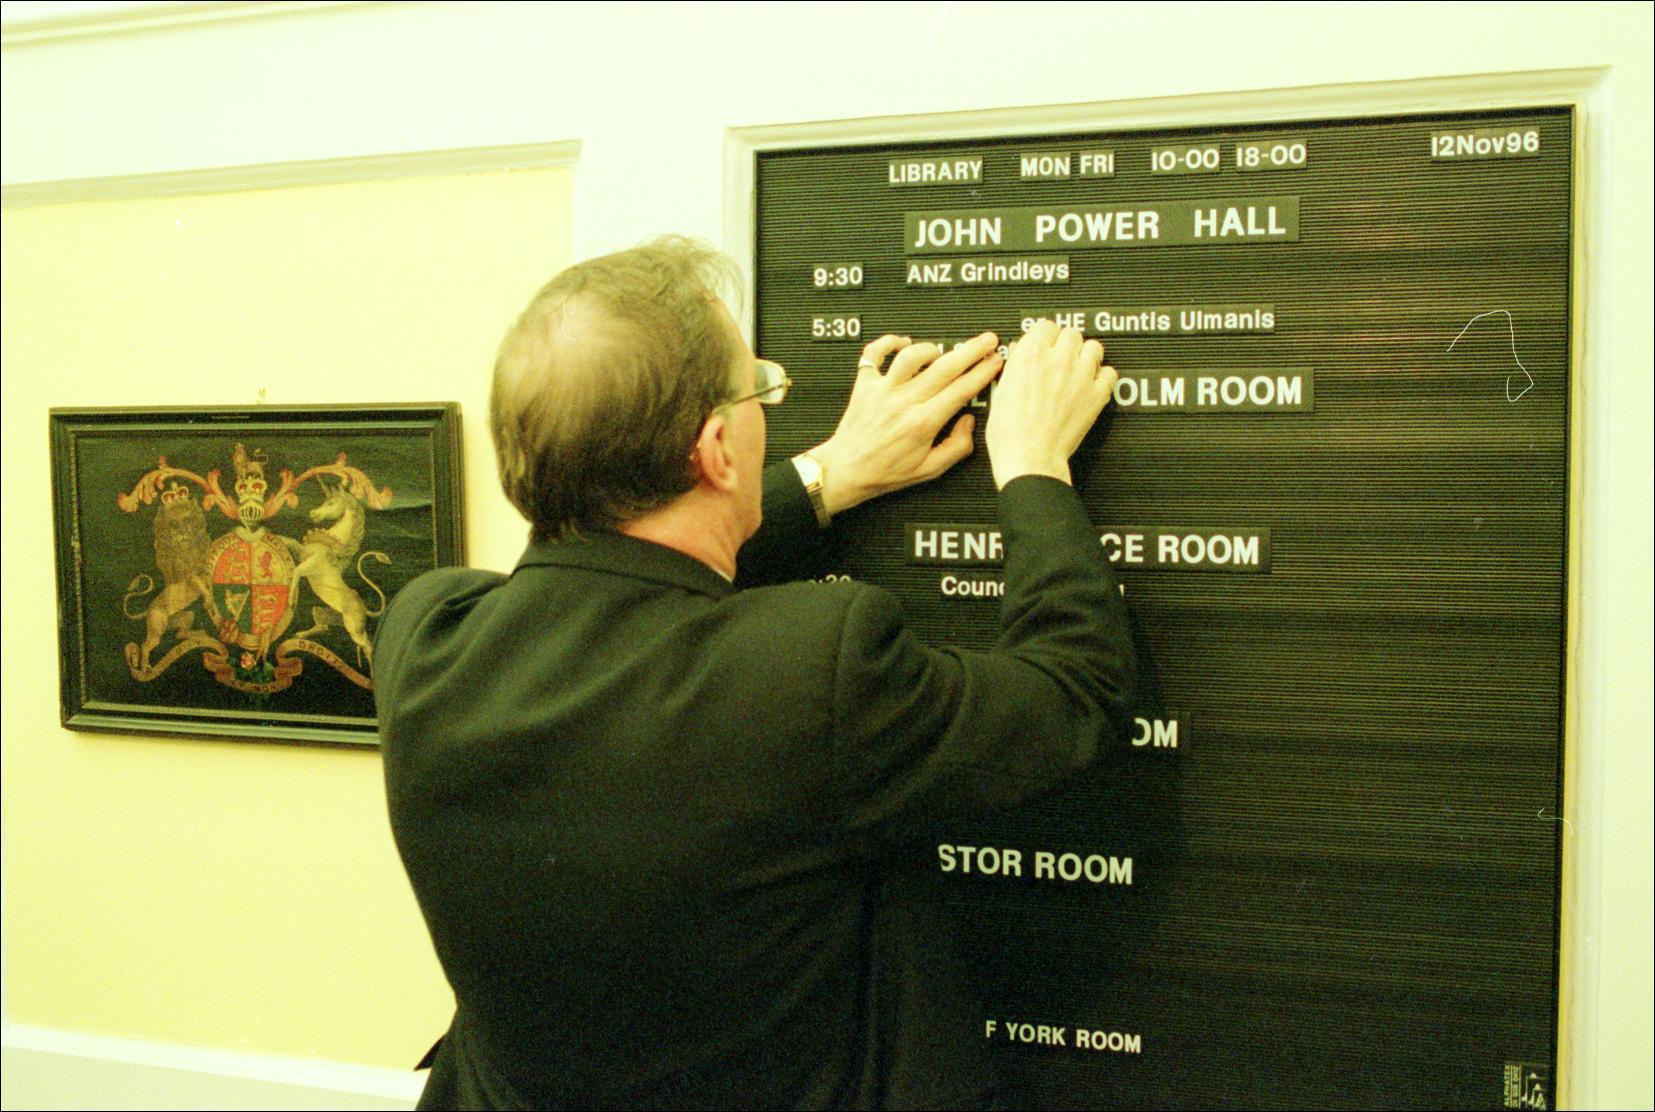 LIBRARY MON FRI 10-00 18-00 12Nov96
JOHN POWER HALL
9:30 ANZ Grindleys
5:30 HE Guntis Ulmanis
OLM ROOM
HENR CE ROOM
Counc
OM
STOR ROOM
F YORK ROOM